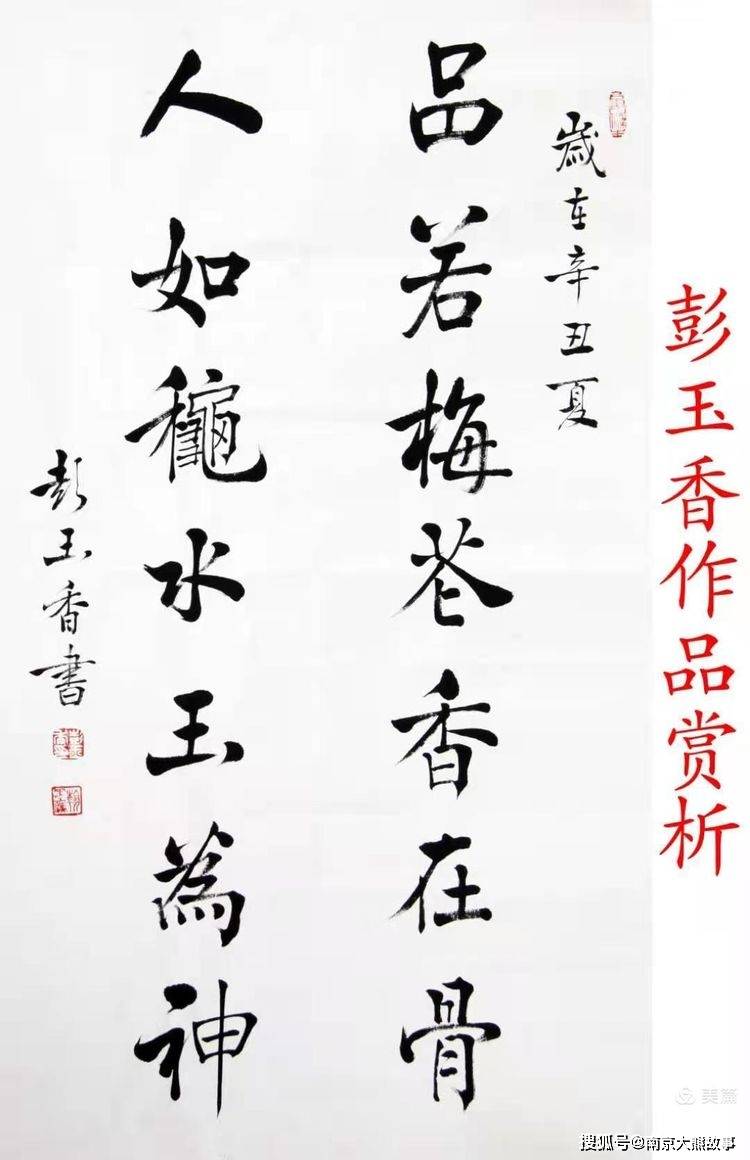 彭玉香作品赏析
歲在辛丑夏
品若梅花香在骨
人如龝水玉為神
彭玉香書
美篇
搜狐号@南京大熊故事